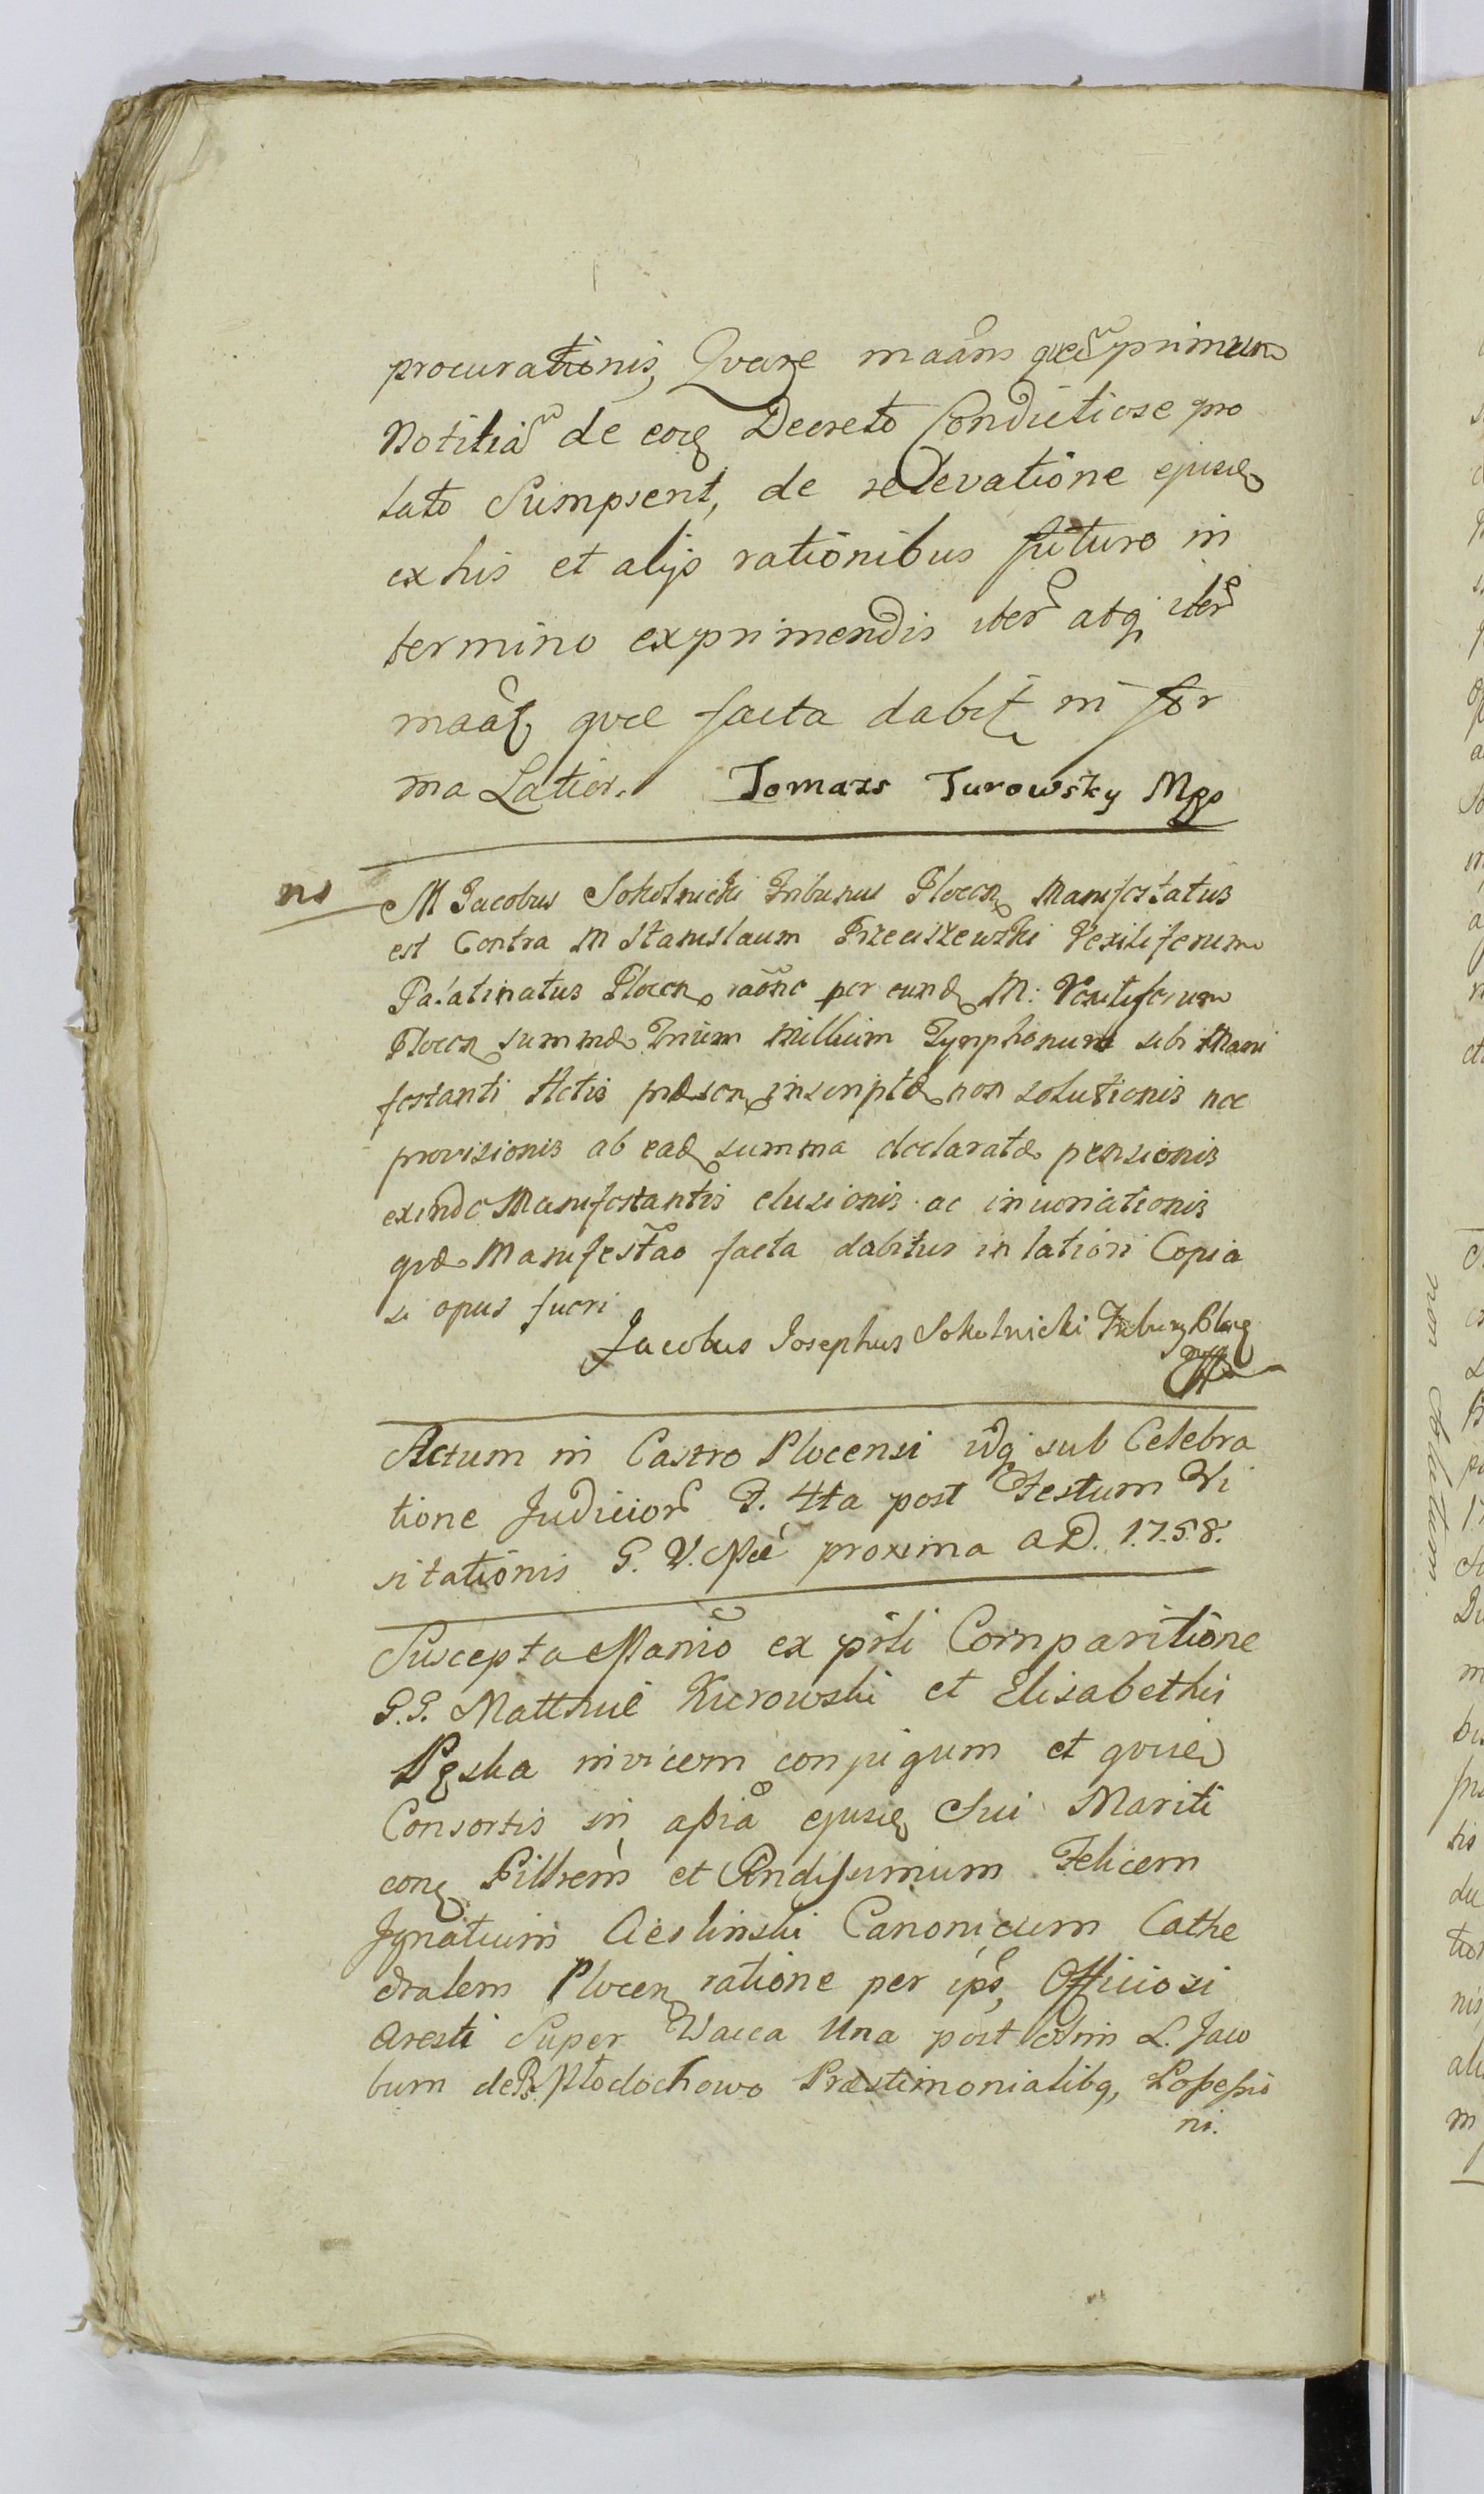 procurationis, Qvare maans qvaprimum
Notitia de eoq Decreto Condictiose pro
lato Sumpsent, de relevatione ejusq
ex his et alijs rationibus futuro in
termino exprimendis iter atq iter
maat, qvae facta dabit in for
ma Latior. Tomazs Turowsky Mpp
ns
M Jacobus Sokolnicki Tribunus Plocen Manifestatus
est Contra M Stanislaum Przeciszewski Vexiliferum
Palatinatus Plocen raone per eund M: Vexiliferum
Plocen summae Trium Millium Tynphonum sibi Mani
festanti Actis praesen inscriptae non solutionis nec
provisionis ab ead summa declaratae pensionis
exinde Manifestantis elusionis ac iniuriationis
qvae Manifestao facta dabitur in latiori Copia
si opus fueri
Jacobus Josephus Sokolnicki Tribun Ploc
mpp
Actum in Castro Plocensi idq sub Celebra
tione Judicior F. 4ta post Festum Vi
sitationis B. V. Mae proxima A D. 1758.
Suscepta Manio ex parti Comparitione
G.G. Matthiae Kurowski et Elisabethis
Pęska invicem conjugum et qvid
Consortis in assia ejusq Sui Mariti
con Illrem et Rndissimum Felicem
Ignatium Cieslinski Canonicum Cathe
dralem Plocen ratione per ips, Officiosi
Aresti Super Vacca Una post olim L. Jaco
bum de B. Płodochowo Praestimonialibq, Possessio
ni.
non Ablatum